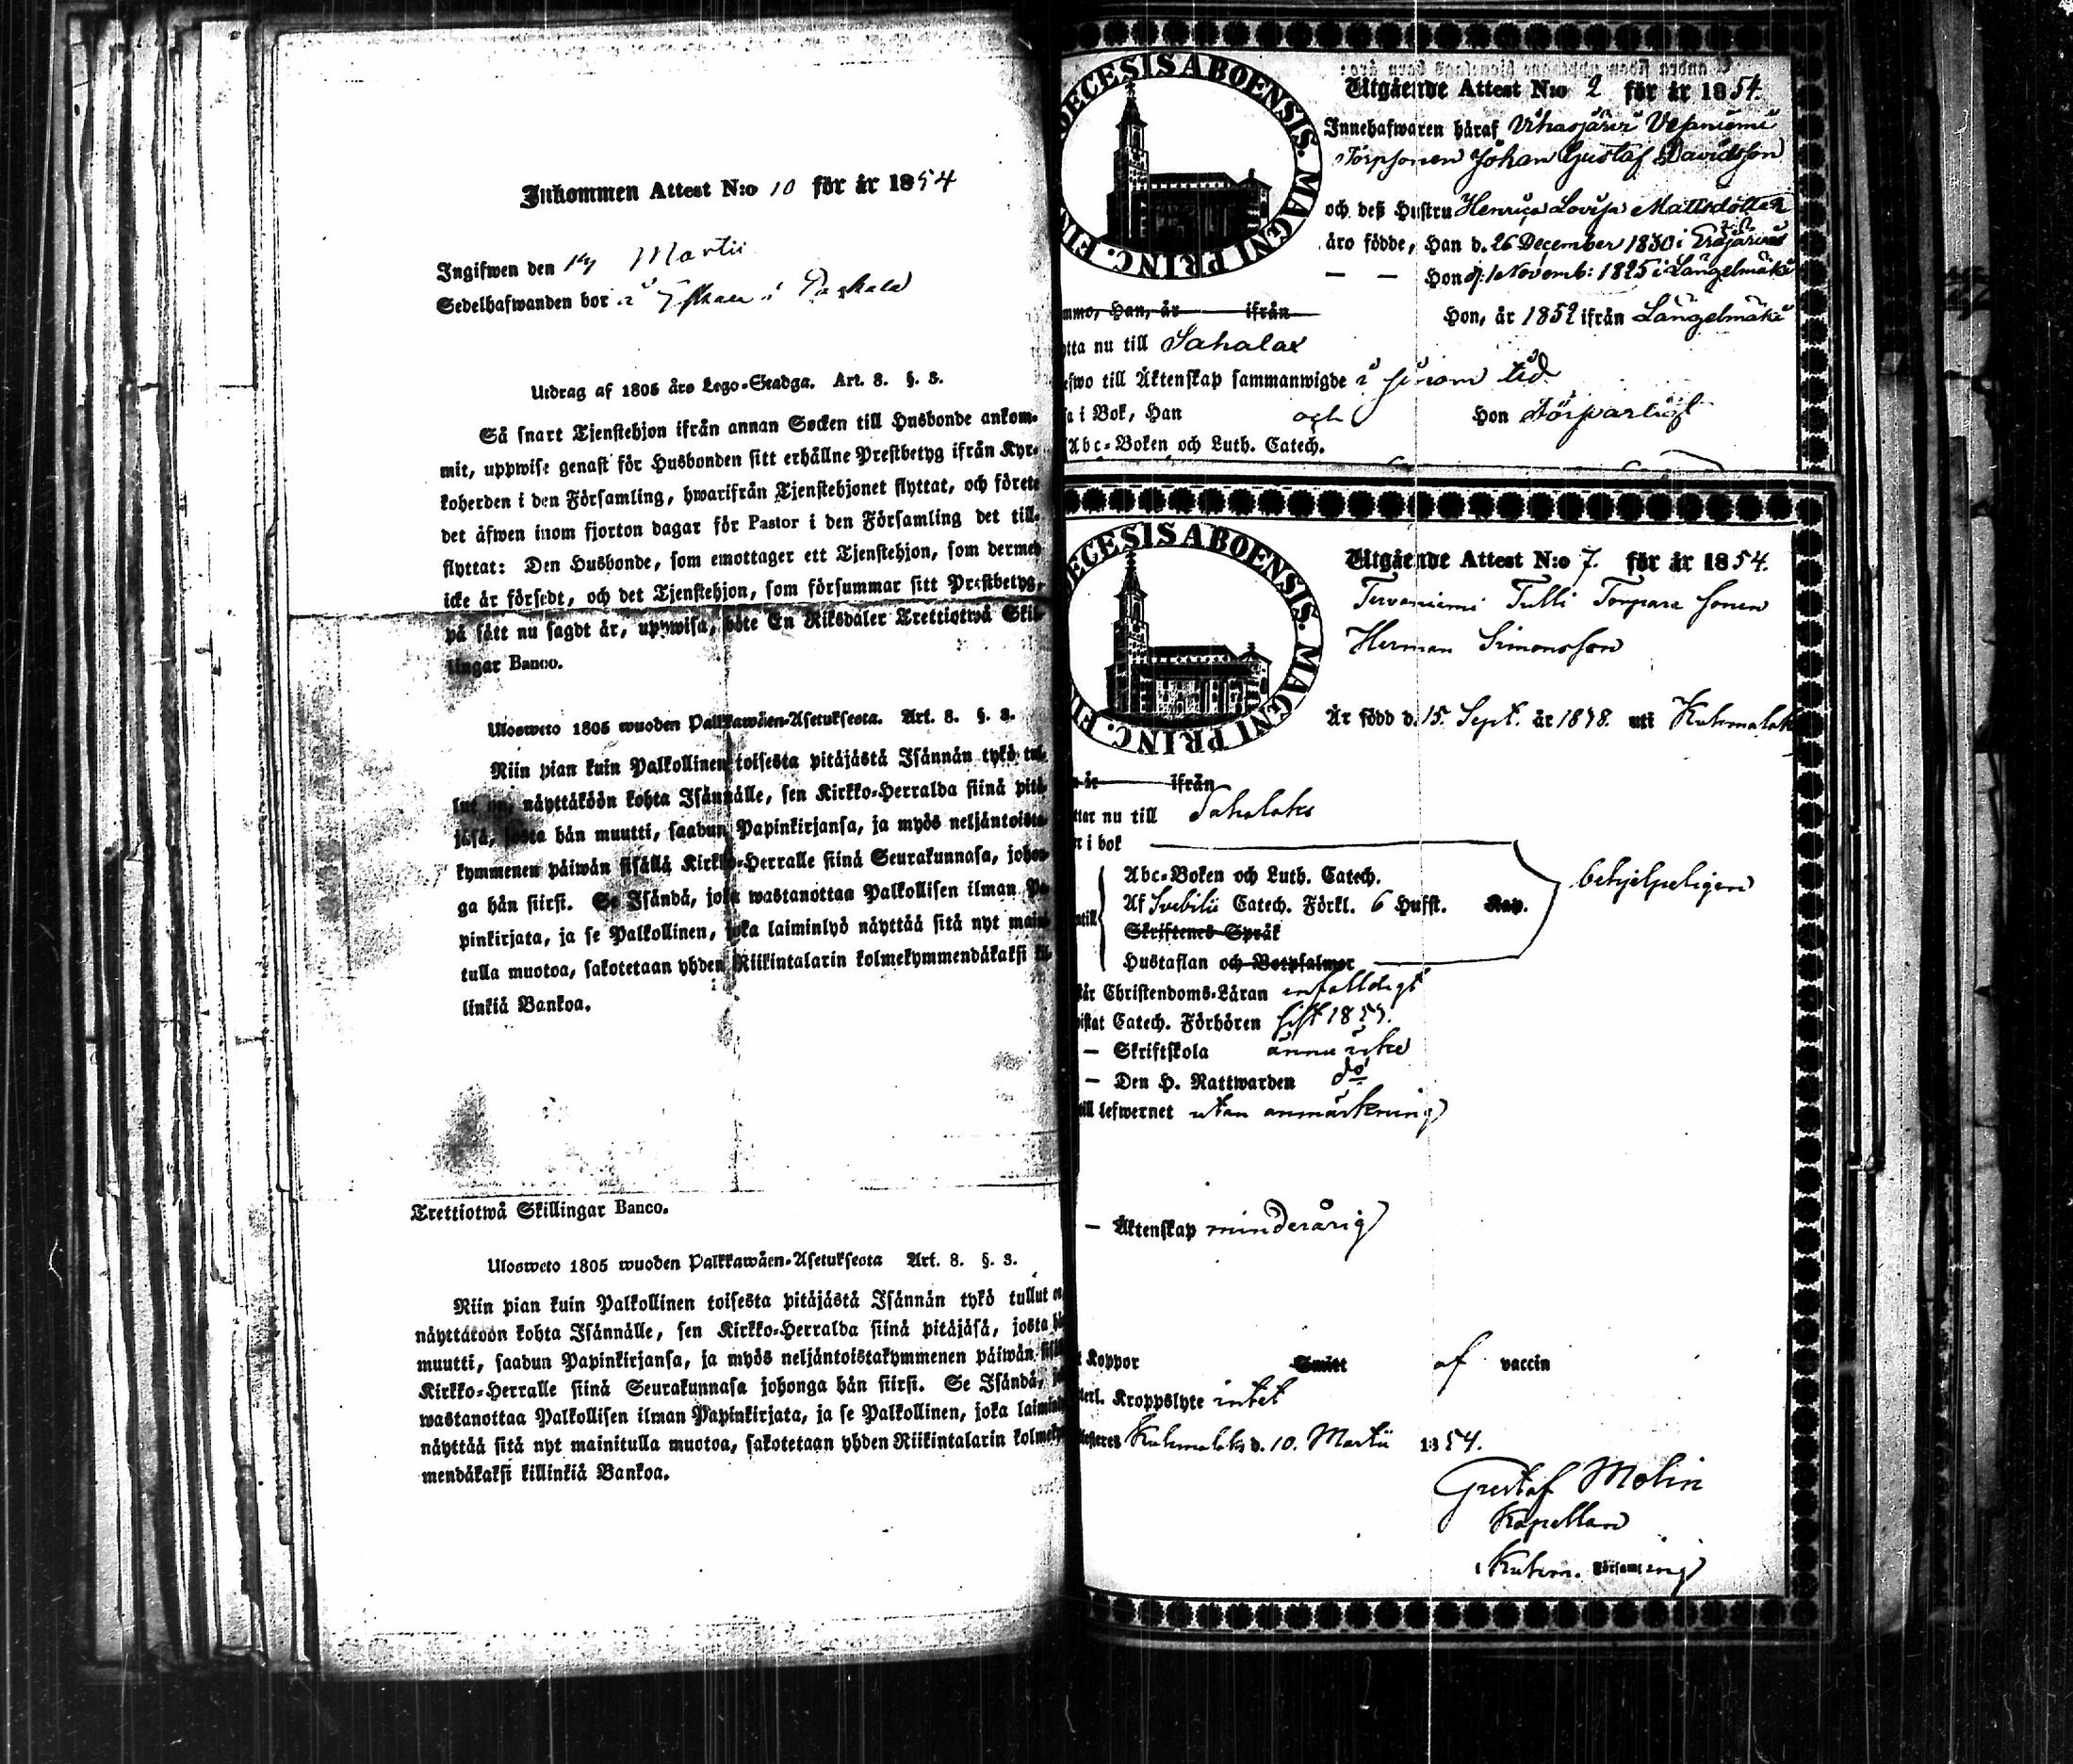 Inkommen Attest N:o 10 för år 1854
Ingifwen den 19 Martii
Sedelhafwanden bor i
Utdrag af 1805 års Lego-Stadga. Art. 8. §. 3.
Så snart Tjenstehjon ifrån annan Socken till Husbonde ankom-
mit, uppwise genast för Husbonden sitt erhållne Prestbetyg ifrån Kyr-
koherden i den Församling, hwarifrån Tjenstehjonet flyttat, och förete
det äfwen inom fjorton dagar för Pastor i den Församling det till-
flyttat: Den Husbonde, som emottager ett Tjenstehjon, som dermed
icke är försedt, och det Tjenstehjon, som försummar sitt Prestbetyg,
på sätt nu sagdt är, uppwisa, böte En Riksdaler Trettiotwå Skil-
lingar Banco.
Ulosweto 1805 wuoden Palkkawäen-Asetuksesta. Art. 8. §. 3.
Niin pian kuin Palkollinen toisesta pitäjästä Isännän tykö tul-
lut on, näyttäköön kohta Isännälle, sen Kirkko-Herralda siinä pitä-
jäsä, josta hän muutti, saadun Papinkirjansa, ja myös neljäntoista-
kymmenen päiwän sisällä Kirkko-Herralle siinä Seurakunnasa, johon-
ga hän siirsi. Se Isändä, joka wastanottaa Palkollisen ilman Pa-
pinkirjata, ja se Palkollinen, joka laiminlyö näyttää sitä nyt maini-
tulla muotoa, sakotetaan yhden Riikintalarin kolmekymmendäkaksi kil-
linkiä Bankoa.
Trettiotwå Skillingar Banco.
Ulosweto 1805 wuoden Palkkawäen-Asetuksesta Art. 8. §. 3.
Niin pian kuin Palkollinen toisesta pitäjästä Isännän tykö tullut on
näyttäköön kohta Isännälle, sen Kirkko-Herralda siinä pitäjäsä, josta hän
muutti, saadun Papinkirjansa, ja myös neljäntoistakymmenen päiwän sisällä
Kirkko-Herralle siinä Seurakunnasa johonga hän siirsi. Se Isändä, joka
wastanottaa Palkollisen ilman Papinkirjata, ja se Palkollinen, joka laiminlyö
näyttää sitä nyt mainitulla muotoa, sakotetaan yhden Riikintalarin kolmekym-
mendäkaksi killinkiä Bankoa.
DECESIS ABOENSIS. MAGNI PRINC. FI
Utgående Attest N:o 2 för år 1854.
Innehafwaren häraf Vihasjärvi Vesaniemi
Torpsonen Johan Gustaf Davidsson
och deß Hustru Henrica Lovisa Mattsdotter
äro födde, Han d. 26 December 1830 i Eräjärvi
— — Hon d. 1 Novemb: 1825 i Längelmäki
mmo, Han, år ifrån Hon, år 1852 ifrån Längelmäki
ytta nu till Sahalax
efwo till Äktenskap sammanwigde i sinom tid
sa i Bok, Han och Hon försvarligt
Abc-Boken och Luth. Catech.
DECESIS ABOENSIS. MAGNI PRINC. FI
Utgående Attest N:o 7. för år 1854.
Tervaniemi Tulli Torpare sonen
Herman Simonsson
Är född d. 15. Sept. år 1838. uti Kuhmalaks
n år ifrån
ttar nu till Sahalaks
r i bok
Abc-Boken och Luth. Catech.
Af Svebilii Catech. Förkl. 6 Hufst. Kap. behjelpeligen
Skriftenes Språk
Hustaflan och Botpsalmer
tår Christendoms-Läran enfalldigt
istat Catech. Förhören sist 1853.
— Skriftskola ännu icke
— Den H. Nattwarden do
till lefwernet utan anmärkning
— Äktenskap minderårig
t Koppor Smitt af vaccin
terl. Kroppslyte intet
testeres Kuhmalaks d. 10. Martii 1854.
Gustaf Molin
Kapellan
i Kuhm. Församling